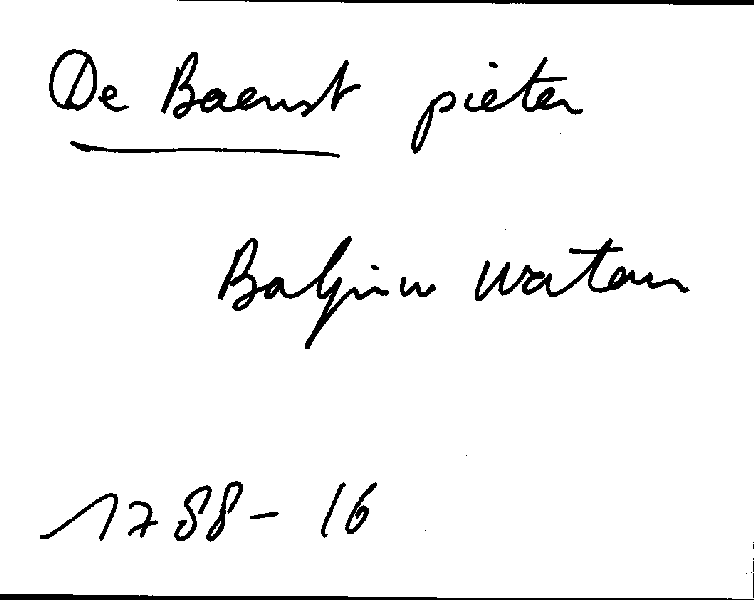 De Baenst pieter
Baljuw watou
1788-16